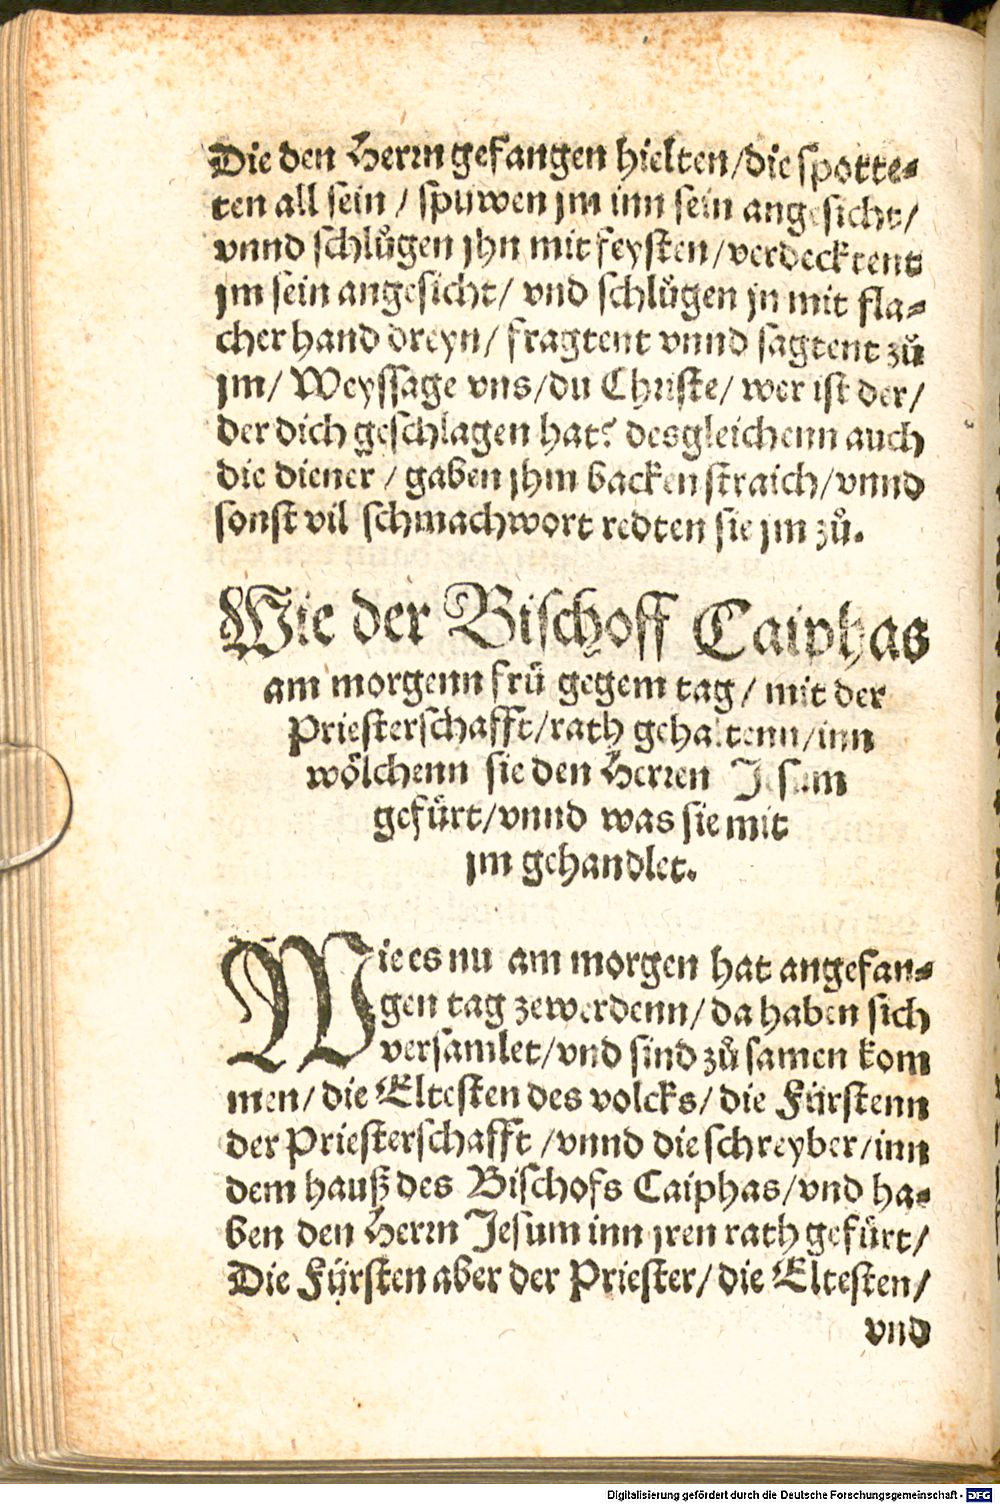 Die den Herrn gefangen hielten/die spotte⸗
ten all sein / spuwen jm inn sein angesicht/
vnnd schlůgen jhn mit feysten/verdecktent
jm sein angesicht/ vnd schlůgen jn mit fla⸗
cher hand dreyn/ fragtent vnnd sagtent zů
jm/ Weyssage vns/du Christe/ wer ist der/
der dich geschlagen hat? desgleichenn auch
die diener / gaben jhm backen straich/vnnd
sonst vil schmachwort redten sie jm zů.
Wie der Bischoff Caiphas
am morgenn frü gegem tag/ mit der
Priesterschafft/rath gehaltenn/inn
wölchenn sie den Herren Jesum
gefürt/vnnd was sie mit
jm gehandlet.
Wie es nu am morgen hat angefan⸗
gen tag zewerdenn/da haben sich
versamlet/vnd sind zů samen kom
men/ die Eltesten des volcks/ die Fürstenn
der Priesterschafft /vnnd die schreyber/inn
dem hauß des Bischofs Caiphas/vnd ha⸗
ben den Herrn Jesum inn jren rath gefürt/
Die Fürsten aber der Priester/ die Eltesten/
vnd
Digitalisierung gefördert durch die Deutsche Forschungsgemeinschaft - DFG